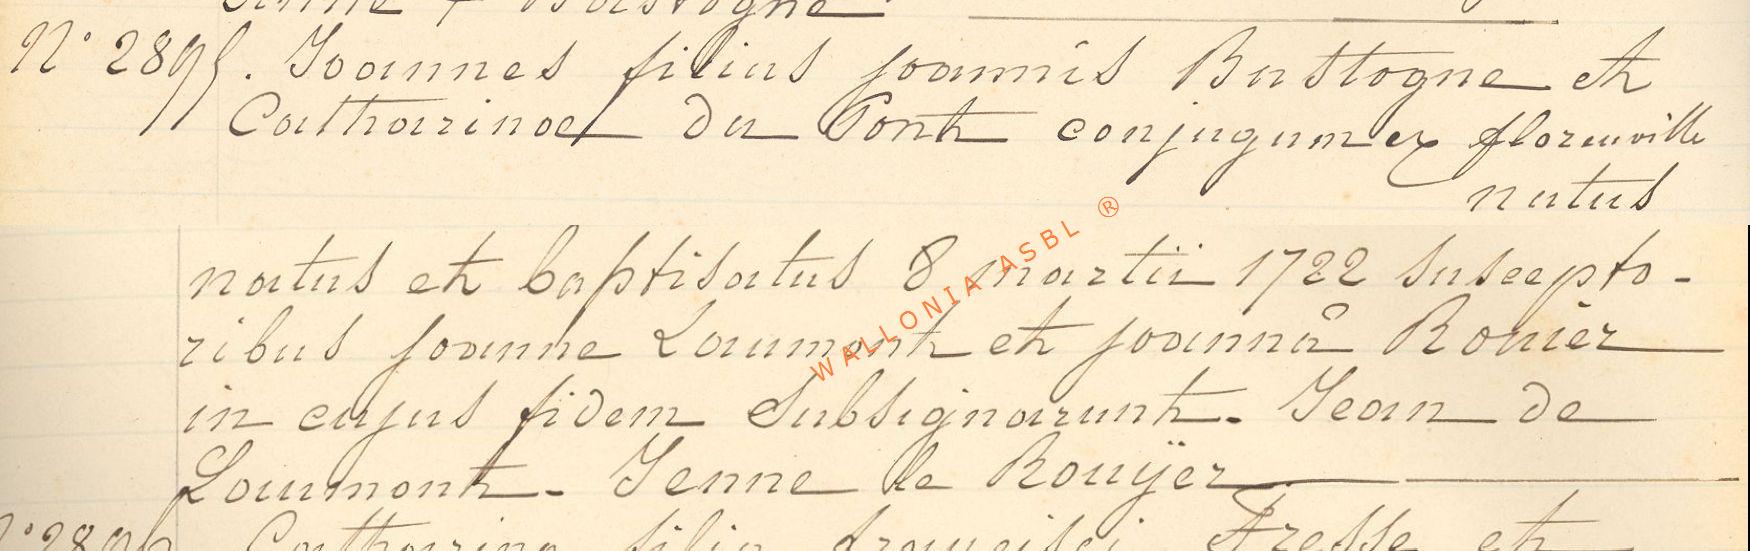 Bastogne
N° 2895. Joannes filius joannis Bastogne et
Catharinae du Pont conjugum ex florenville
natus
natus et baptisatus 8 martii 1722 suscepto-
ribus joanne Laumont et joannâ Rouièr
in cujus fidem subsignarunt. Jean de
Laumont. Jenne le Rouÿer
N° 2896 Catharina filia francisci Fresse et
WALLONIA ASBL ®